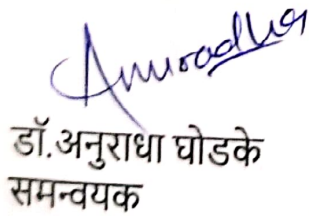 Anuradha
डॉ.अनुराधा घोडके
समन्वयक